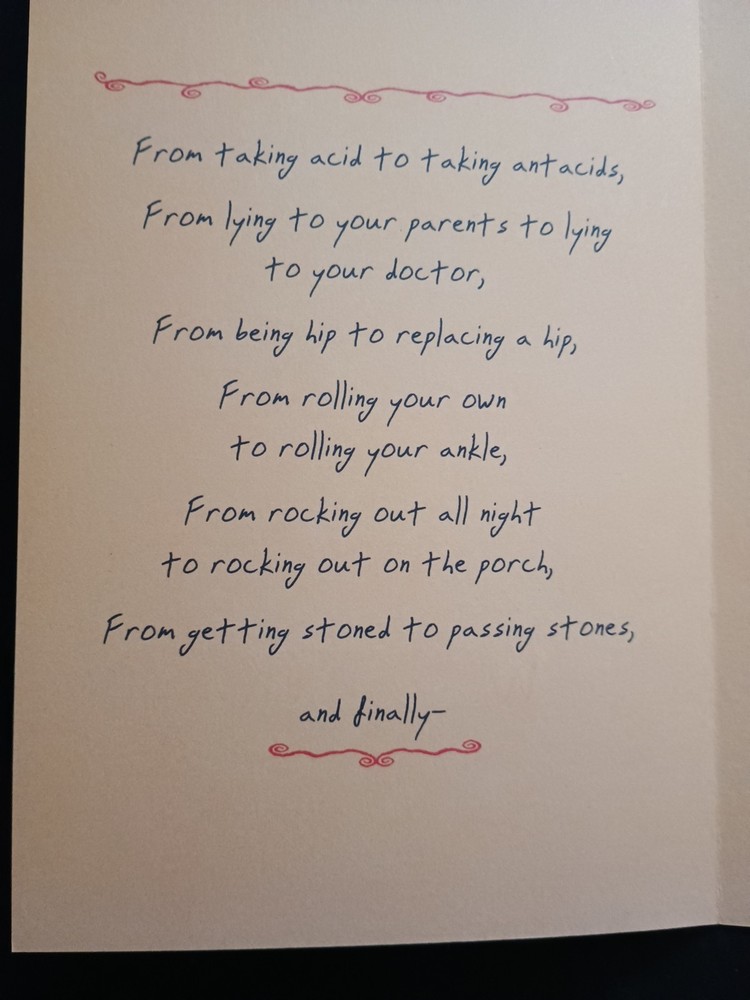 From taking acid to taking antacids,
From lying to your parents to lying
to your doctor,
From being hip to replacing a hip,
From rolling your own
to rolling your ankle,
From rocking out all night
to rocking out on the porch,
From getting stoned to passing stones,
and finally-